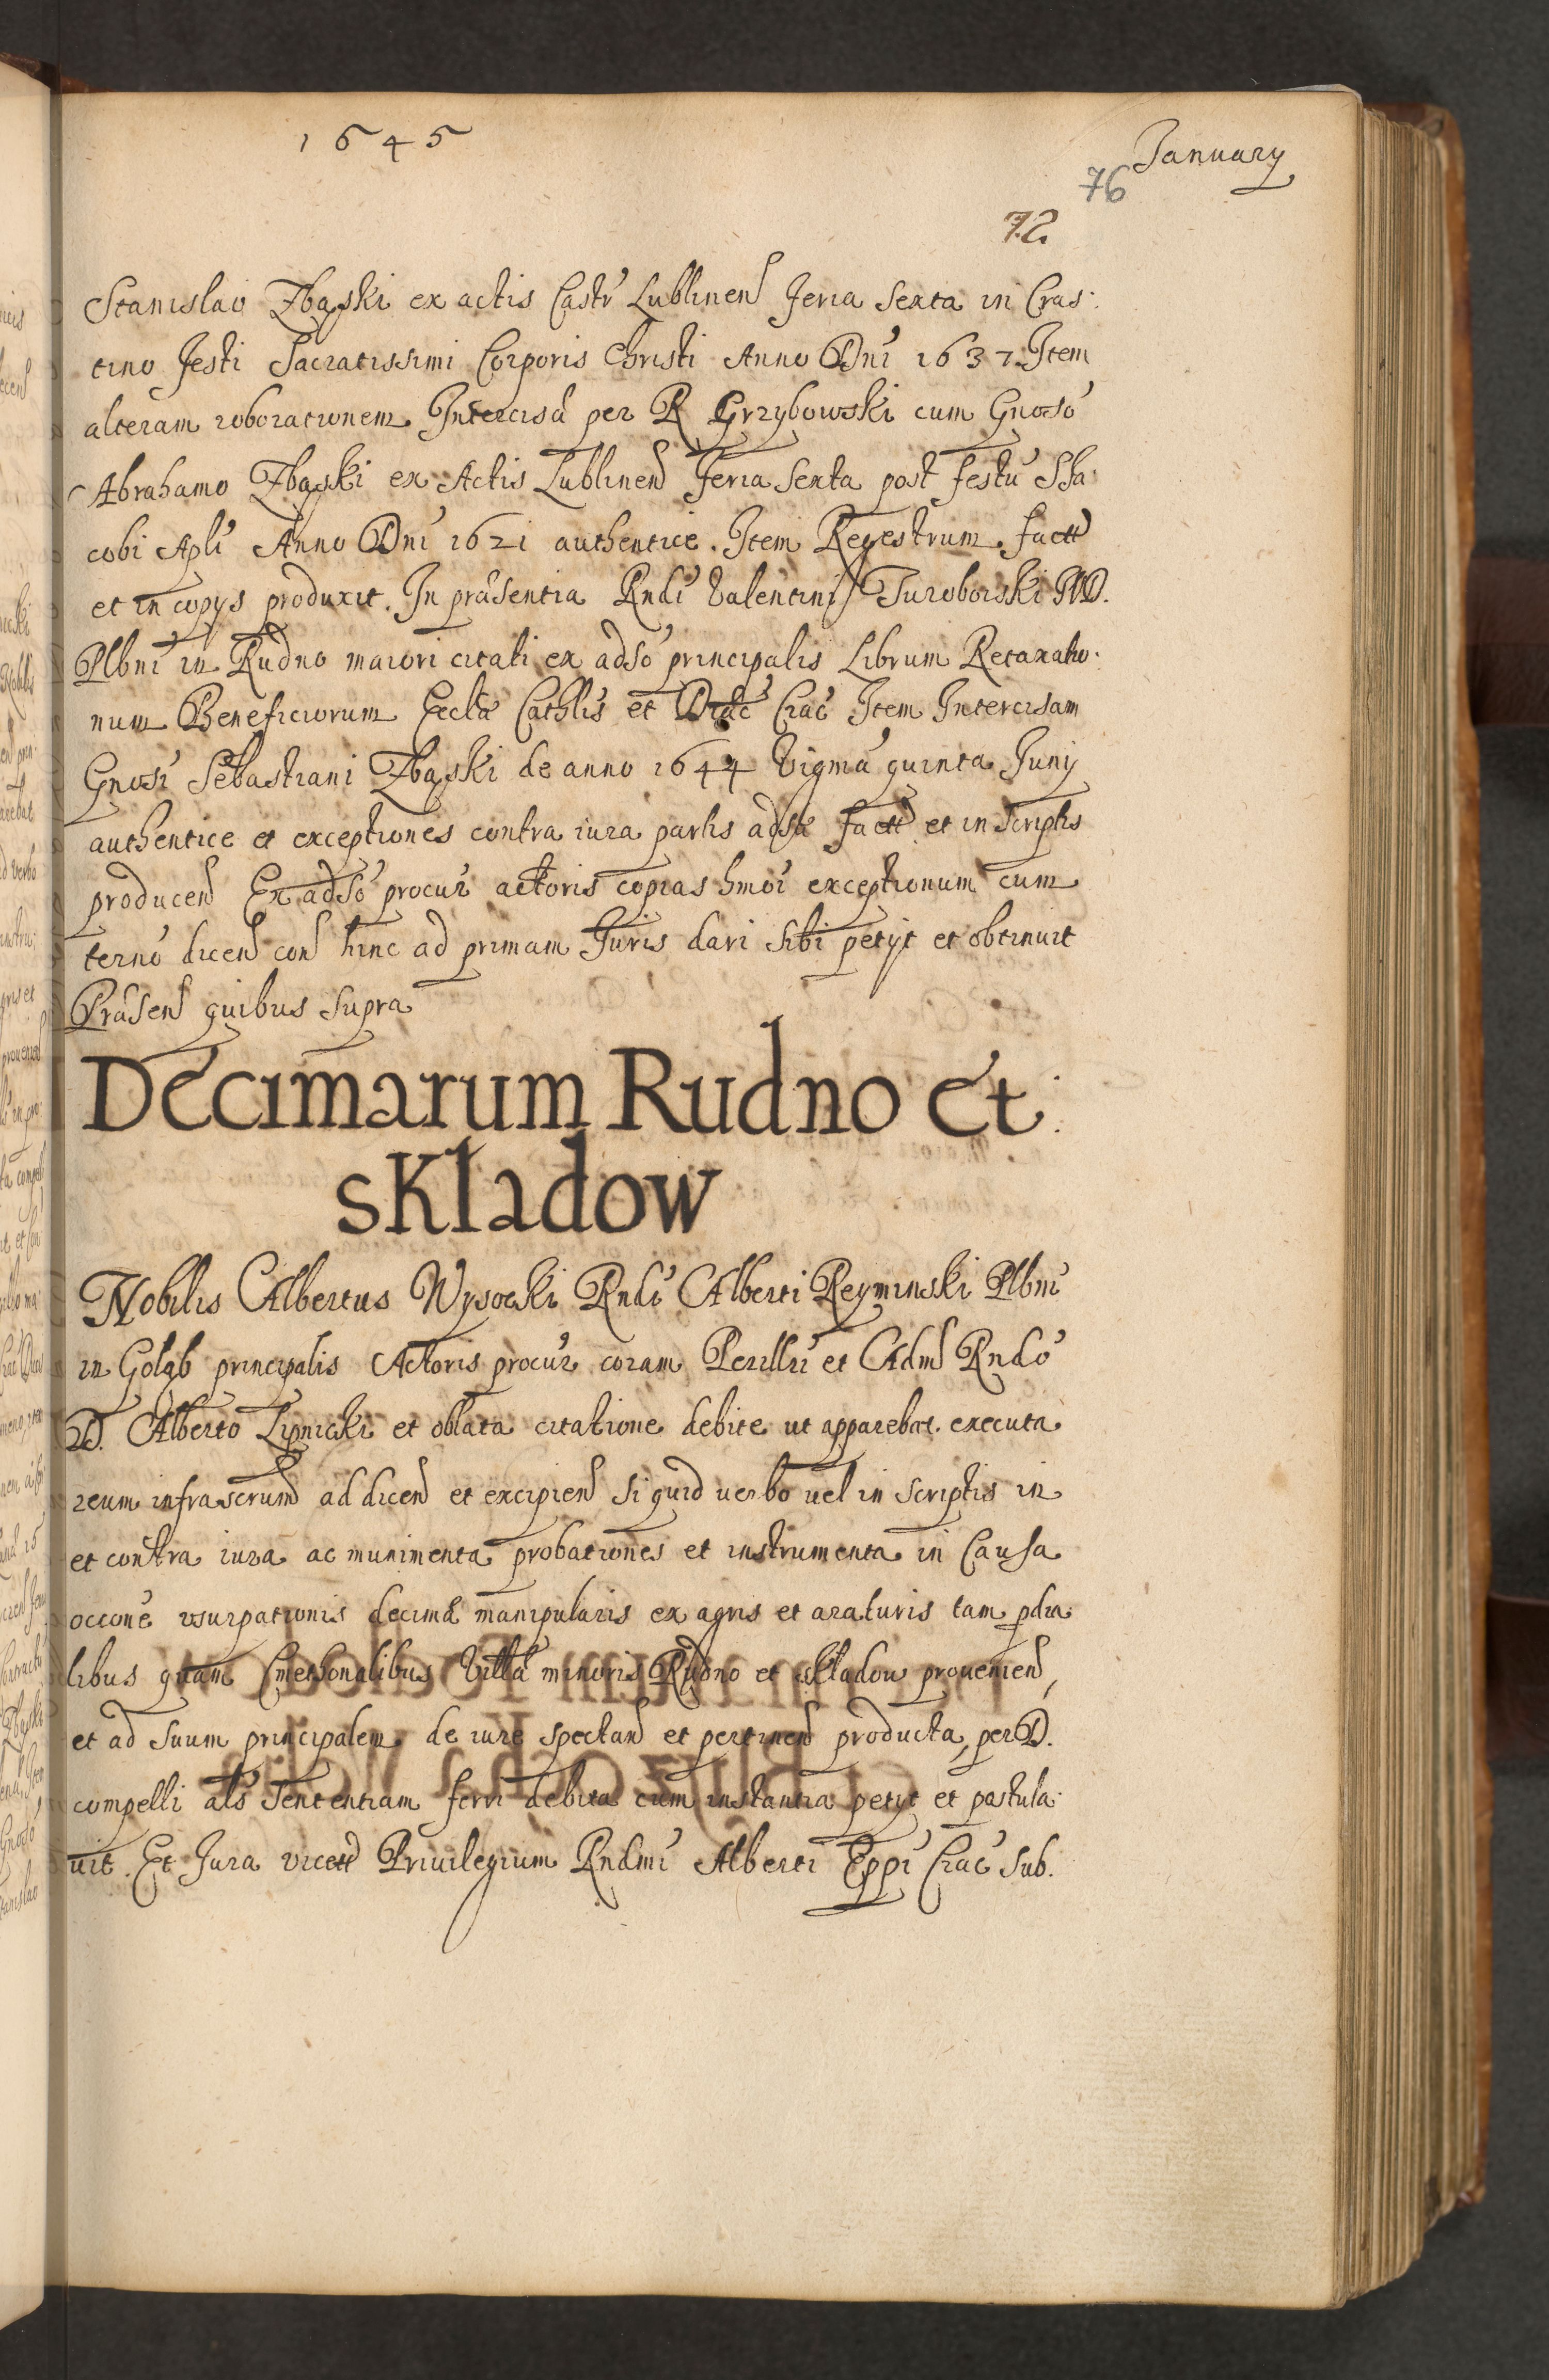 1645
January
76
72
Stanislao Zbąski ex actis Castr Lublinen feria sexta in Cras:
tino festi Sacratissimi Corporis Christi Anno Dni 1637. Item
alteram roborationem Intercisæ per R Grzybowski cum Gnoso
Abrahamo Zbąski ex Actis Lublinen feria sexta post festu S Ja
cobi Apli Anno Dni 1621 authentice. Item Regestrum
et in copys produxit. In præsentia Rndi Valentini Turoboiski
Plbni in Rudno maiori citati ex adso principalis Librum Retaxatio:
num Beneficiorum Eccla Cathlis et Crac Item Intercisam
Gnosi Sebastiani Zbąski de anno 1644 Vigma quinta Juny
authentice et exceptiones contra iura partis adsæ et in scriptis
producen Ex adso procur actoris copias hmoi exceptionum cum
terno dicen con hinc ad primam Juris dari sibi petyt et obtinuit
Præsen quibus supra
Decimarum Rudno et
skladow
Nobilis Albertus Wysocki Rndi Alberti Reyminski Plbni
in Goląb principalis Actoris procur coram Perillri et Adm Rndo
D. Alberto Lipnicki et oblata citatione debite ut apparebat executa
reum infrascrum ad dicen et excipien si quid verbo uel in scriptis in
et contra iura ac munimenta probationes et instrumenta in Causa
occone usurpationis decimæ manipularis ex agris et araturis tam pdia
libus quam Cmethonalibus Villæ minoris Rudno et skladow prouenien,
et ad suum principalem de iure spectan et pertinen producta, per D.
compelli als Sententiam ferri debita cum instantia petyt et postula
uit. Et Jura Priuilegium Rndmi Alberti Eppi Crac sub.